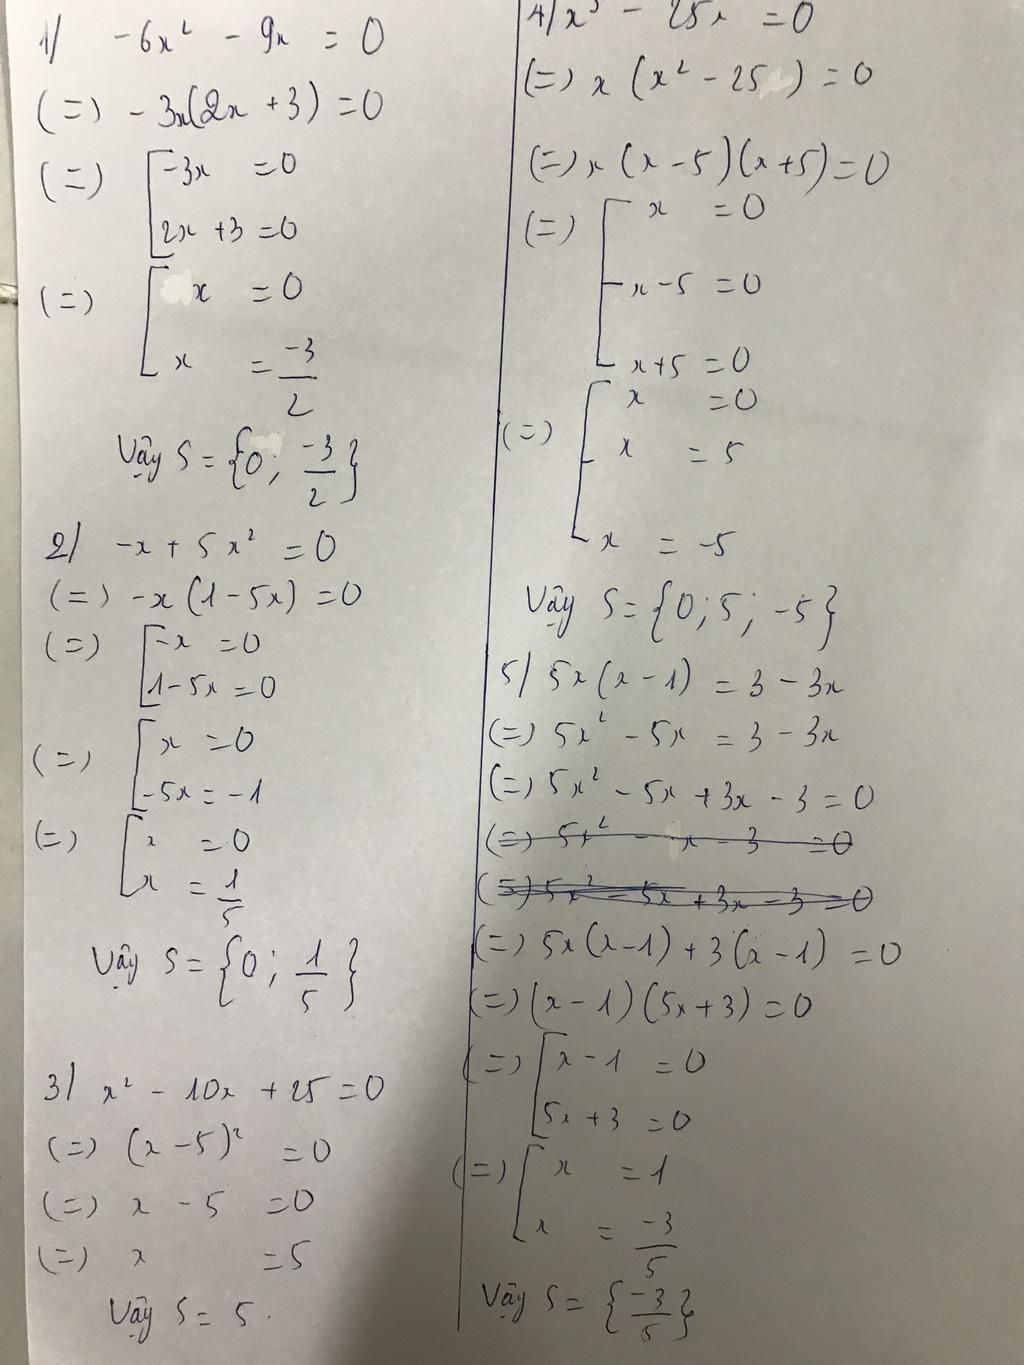 1/ -6x² - 9x = 0
(=) -3x(2x + 3) = 0
(=) [ -3x = 0
2x + 3 = 0
(=) [ x = 0
x = -3/2
Vậy S = {0; -3/2}
2/ -x + 5x² = 0
(=) -x (1 - 5x) = 0
(=) [ -x = 0
1 - 5x = 0
(=) [ x = 0
-5x = -1
(=) [ x = 0
x = 1/5
Vậy S = {0; 1/5}
3/ x² - 10x + 25 = 0
(=) (x - 5)² = 0
(=) x - 5 = 0
(=) x = 5
Vậy S = 5.
4/ x³ - 25x = 0
(=) x (x² - 25) = 0
(=) x (x - 5)(x + 5) = 0
(=) [ x = 0
x - 5 = 0
x + 5 = 0
(=) [ x = 0
x = 5
x = -5
Vậy S = {0; 5; -5}
5/ 5x (x - 1) = 3 - 3x
(=) 5x² - 5x = 3 - 3x
(=) 5x² - 5x + 3x - 3 = 0
(=) 5x² - x - 3 = 0
(=) 5x² - 5x + 3x - 3 = 0
(=) 5x (x - 1) + 3 (x - 1) = 0
(=) (x - 1) (5x + 3) = 0
(=) [ x - 1 = 0
5x + 3 = 0
(=) [ x = 1
x = -3/5
Vậy S = {-3/5}